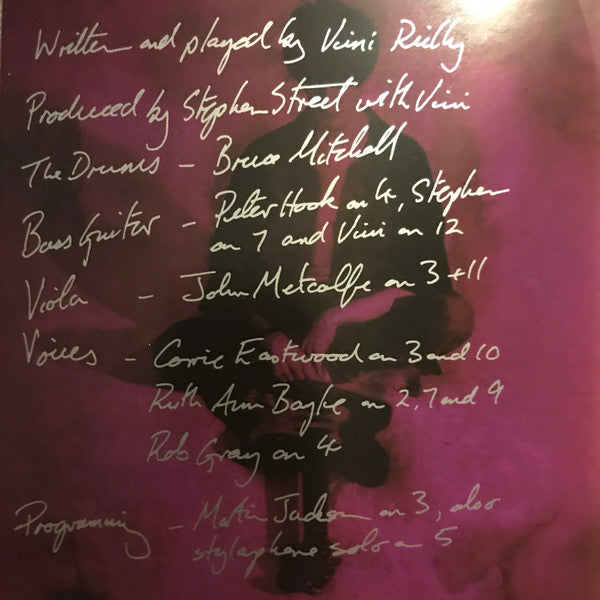 Written and played by Vini Reilly
Produced by Stephen Street with Vini
The Drums - Bruce Mitchell
Bass Guitar - Peter Hook on 4, Stephen
on 7 and Vini on 12
Viola - John Metcalfe on 3 + 11
Voices - Corrie Eastwood on 3 and 10
Ruth Ann Boyle on 2, 7 and 9
Rob Gray on 4
Programming - Martin Jackson on 3, also
stylaphone solo on 5